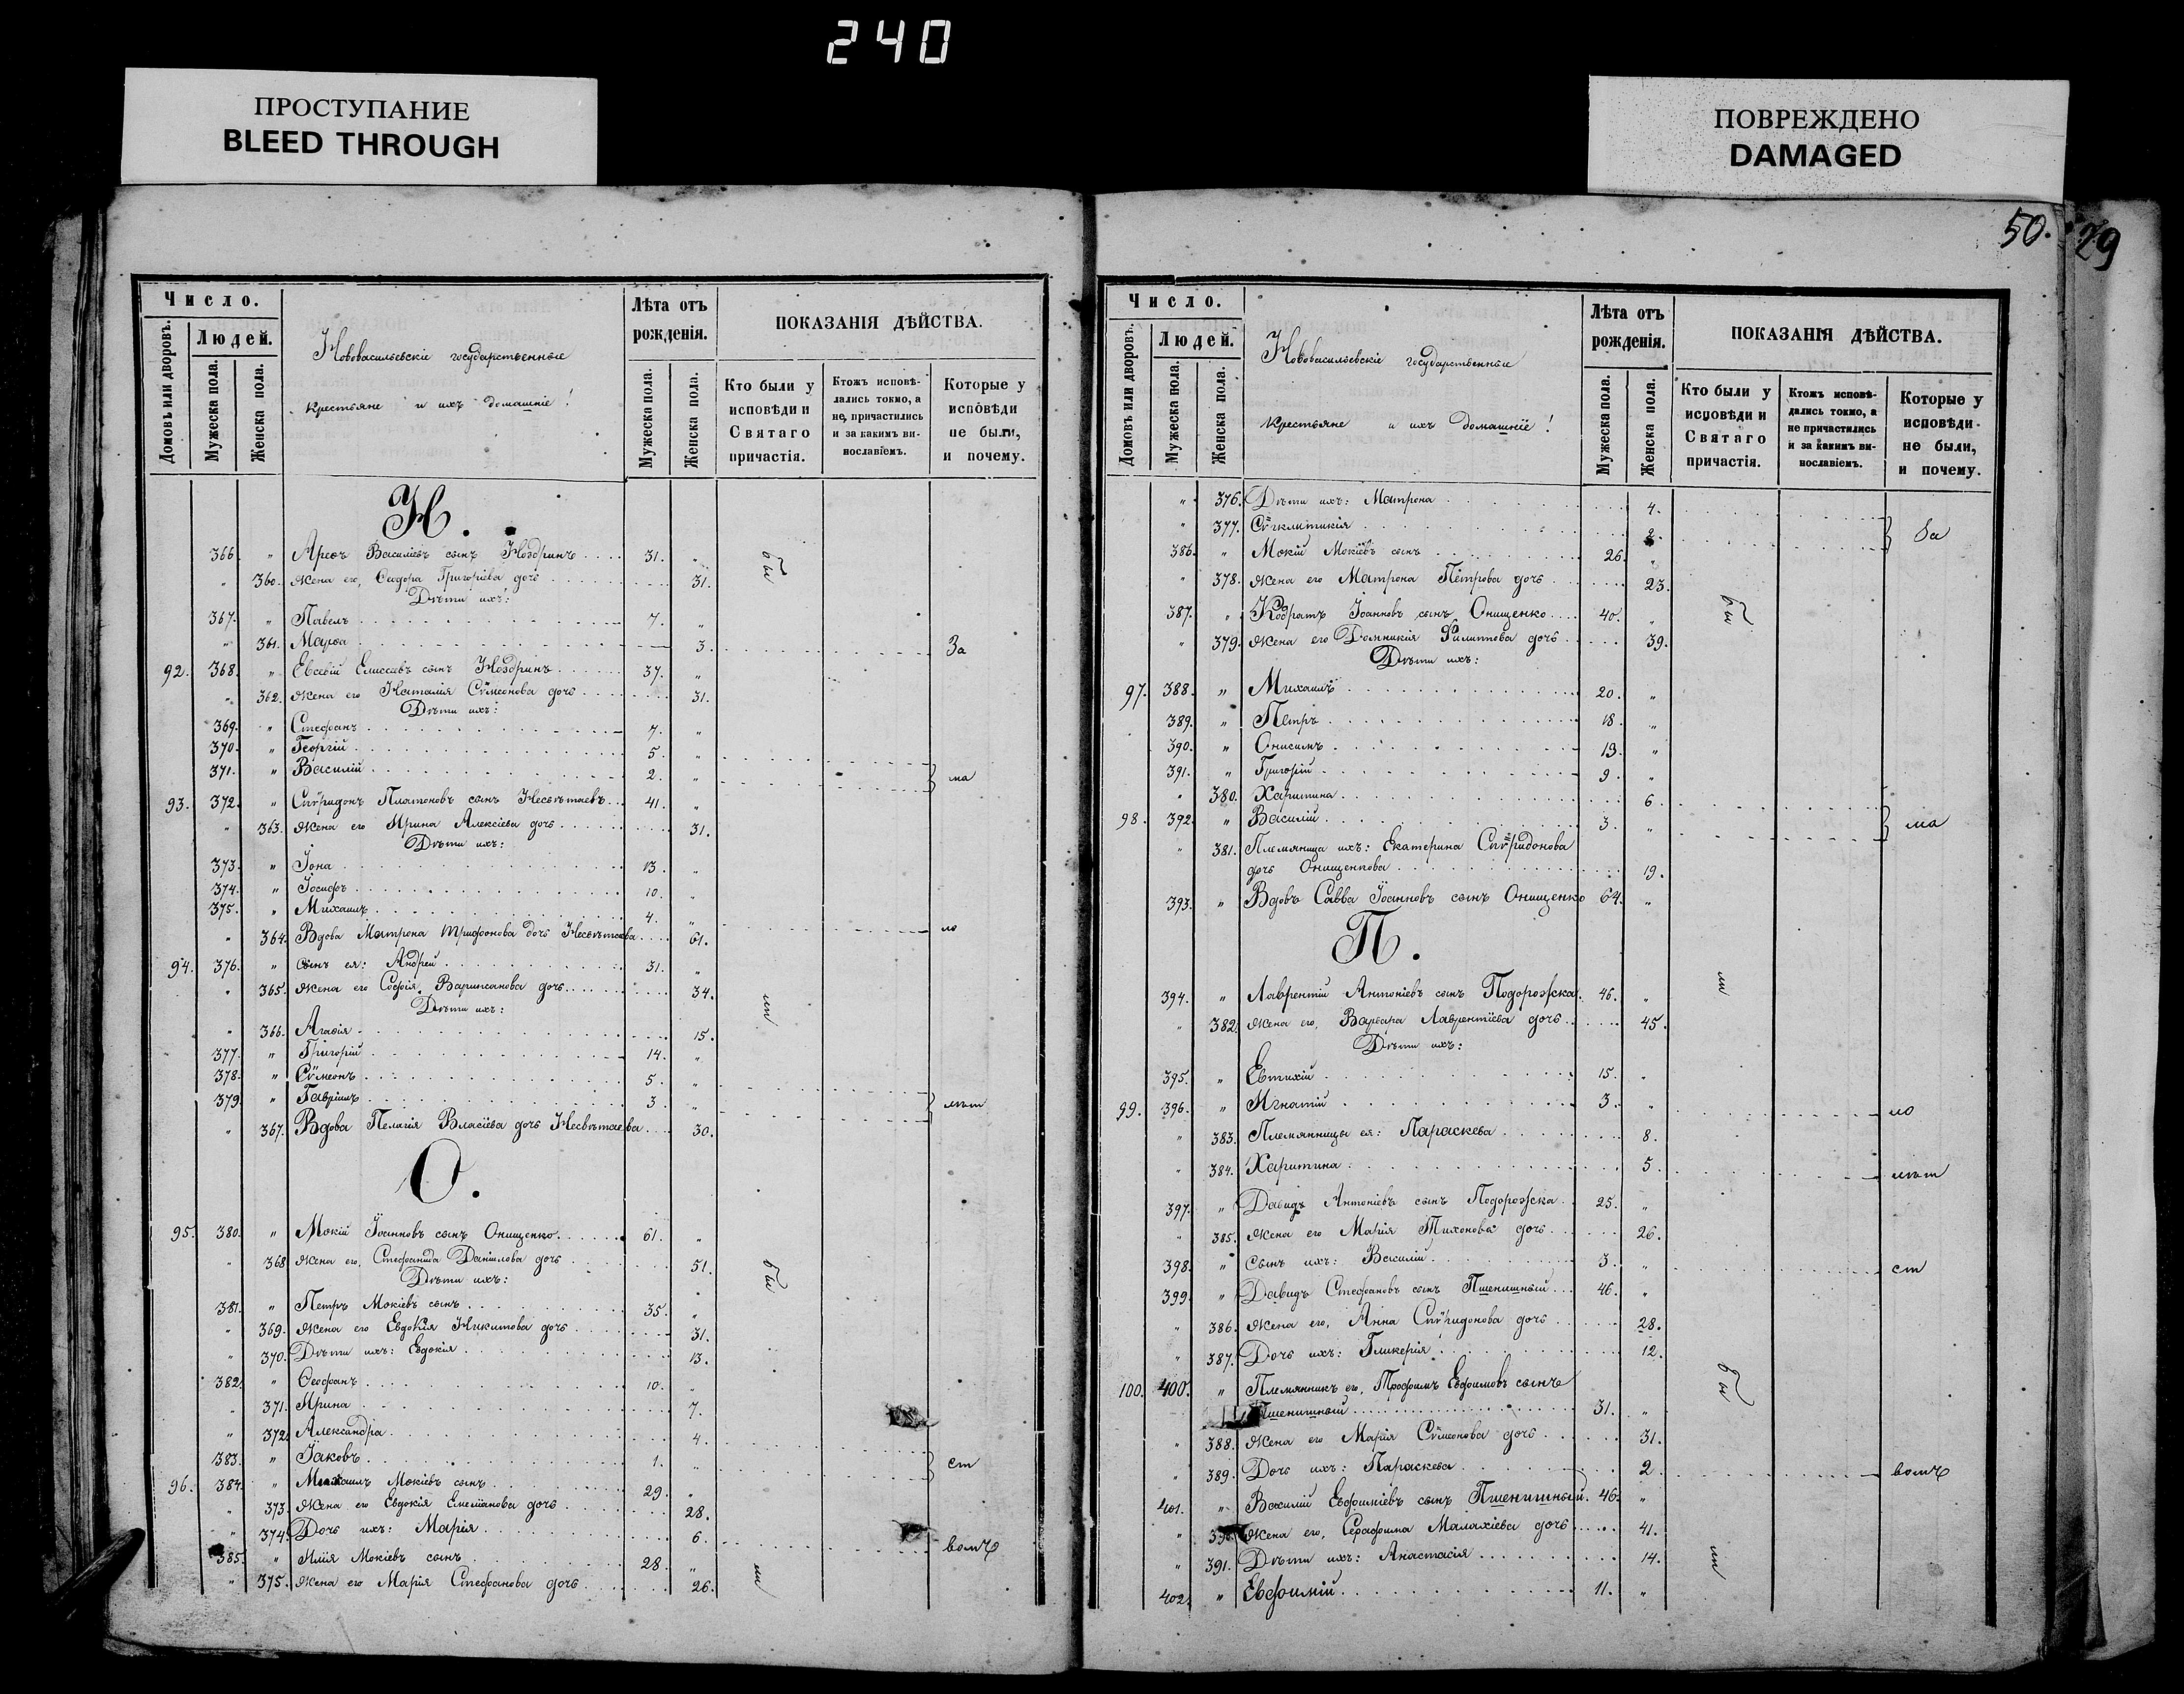 240
ПРОСТУПАНИЕ
BLEED THROUGH
ПОВРЕЖДЕНО
DAMAGED
50. 29
Число.
Домовъ или дворовъ.
Людей.
Мужеска пола.
Женска пола.
Нововасильевскіе государственные
крестьяне и ихъ домашніе!
Лѣта отъ рожденія.
Мужеска пола.
Женска пола.
ПОКАЗАНІЯ ДѢЙСТВА.
Кто были у исповѣди и Святаго причастія.
Ктожъ исповѣдались токмо, а не причастились и за какимъ винословіемъ.
Которые у исповѣди не были, и почему.
Н.
366. " Ареѳъ Василіевъ сынъ Ноздринъ 31. " бы
" 360. Жена его, Ѳеодора Григоріева дочь 31.
Дѣти ихъ:
367. " Павелъ 7. "
" 361. Марѳа 3. За
92. 368. " Евсевій Елисеевъ сынъ Ноздринъ 37. "
" 362. Жена его Наталія Сѵмеонова дочь 31.
Дѣти ихъ:
369. " Стефанъ 7. "
370. " Георгій 5. "
371. " Василій 2. " ма
93. 372. " Спѵридонъ Платоновъ сынъ Несвѣтаевъ 41. "
" 363. Жена его Ирина Алексіева дочь 31.
Дѣти ихъ:
373. " Іона 13. "
374. " Іосифъ 10. "
375. " Михаилъ 4. " ло
" 364. Вдова Матрона Трифонова дочь Несвѣтаева 61.
94. 376. " Сынъ ея: Андрей 31. "
" 365. Жена его Софія Варипсанова дочь 34. ли
Дѣти ихъ:
" 366. Агаѳія 15.
377. " Григорій 14. "
378. " Сѵмеонъ 5. "
379. " Гавріилъ 3. " лѣт
" 367. Вдова Пелагія Власіева дочь Несвѣтаева 30.
О.
95. 380. " Мокій Іоанновъ сынъ Онищенко 61. "
" 368 Жена его, Стефанида Даніилова дочь 51. бы
Дѣти ихъ:
381. " Петръ Мокіевъ сынъ 35. "
" 369. Жена его Евдокія Никитова дочь 31.
" 370. Дѣти ихъ: Евдокія 13.
382. " Ѳеофанъ 10. "
" 371. Ирина 7.
" 372. Александра 4.
383. " Іаковъ 1. " ст
96. 384. " Михаилъ Мокіевъ сынъ 29. "
" 373. Жена его Евдокія дочь 28.
" 374. Дочь ихъ: Марія 6. вомъ
385. " Илія Мокіевъ сынъ 28. "
" 375. Жена его Марія Стефанова дочь 26. ли
Число.
Домовъ или дворовъ.
Людей.
Мужеска пола.
Женска пола.
Нововасильевскіе государственные
крестьяне и ихъ домашніе!
Лѣта отъ рожденія.
Мужеска пола.
Женска пола.
ПОКАЗАНІЯ ДѢЙСТВА.
Кто были у исповѣди и Святаго причастія.
Ктожъ исповѣдались токмо, а не причастились и за какимъ винословіемъ.
Которые у исповѣди не были, и почему.
" 376. Дѣти ихъ: Матрона 4.
" 377. Сѵгклитикія 2. За
386. " Мокій Мокіевъ сынъ 26. "
" 378. Жена его Матрона Петрова дочь 23.
387. " Кодратъ Іоанновъ сынъ Онищенко 40. " бы
" 379. Жена его Домникія Филиппова дочь 39.
Дѣти ихъ:
97. 388. " Михаилъ 20. "
389. " Петръ 18. "
390. " Онисимъ 13. "
391. " Григорій 9. "
" 380. Харитина 6.
98. 392. " Василій 3. " ма
" 381. Племяница ихъ: Екатерина Спѵридонова
дочь Онищенкова 19.
393. " Вдовъ Савва Іоанновъ сынъ Онищенко 64. "
П.
394. " Лаврентій Антоніевъ сынъ Подорожска 46. " ли
" 382. Жена его, Варвара Лаврентіева дочь 45.
Дѣти ихъ:
395. " Евтихій 15. "
99. 396. " Игнатій 3. " ло
" 383. Племянницы ея: Параскева 8.
" 384. Харитина 5. лѣт
397. " Давидъ Антоніевъ сынъ Подорожска 25. "
" 385. Жена его Марія Тихонова дочь 26.
398. " Сынъ ихъ: Василій 3. " ст
399. " Давидъ Стефановъ сынъ Пшенишный 46. "
" 386. Жена его, Анна Спѵридонова дочь 28.
" 387. Дочь ихъ: Гликерія 12.
100. 400. " Племянникъ его, Трофимъ Евфимовъ сынъ бы
Пшенишный 31. "
" 388. Жена его Марія Сѵмеонова дочь 31.
" 389. Дочь ихъ: Параскева 2. вомъ
401. " Василій Евфиміевъ сынъ Пшенишный 46. "
" Жена его, Серафима Малахіева дочь 41.
" 391. Дѣти ихъ: Анастасія 14. ли
402. " Евфимій 11. "